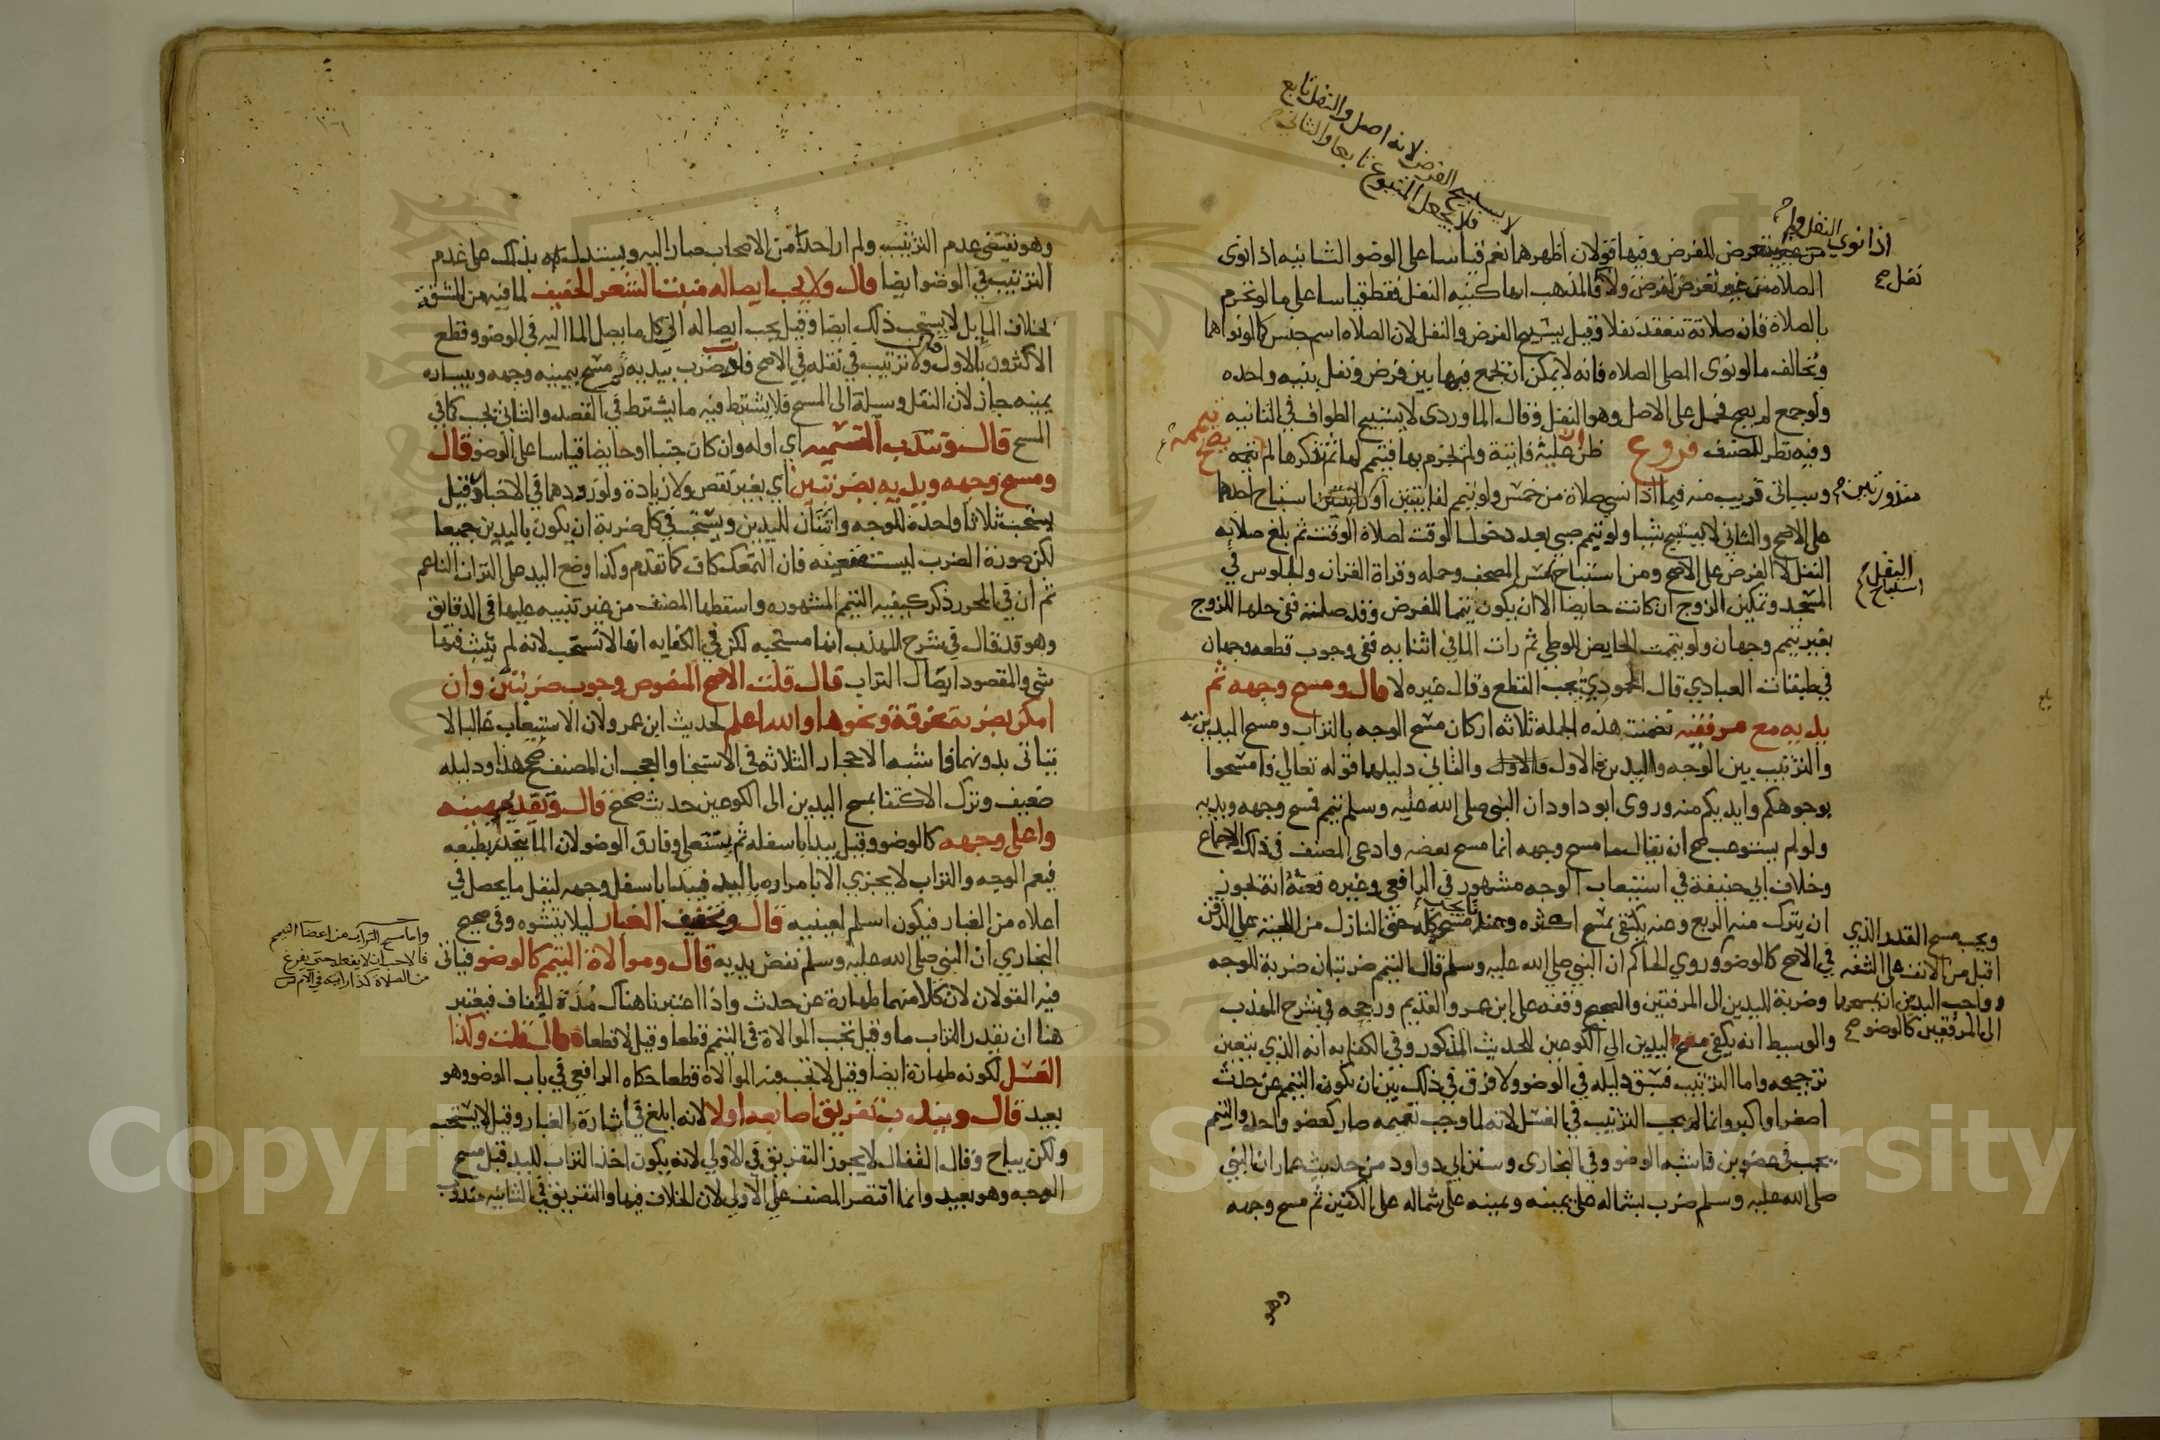 لا يستبيح الفرض لانه اصل والنفل تابع
فلا يجعل المتبوع تابعا والثاني
اذا نوى النفل ولم
من غير تعرض للفرض وفيها قولان اظهرهما نعم قياسا على الوضو الثانيه اذا نوى
نفل صح
الصلاه من غير تعرض لفرض ولا فالمذهب انها كنيه النفل فقط قياسا على ما لو تحرم
بالصلاة فان صلاته تنعقد نفلا وقيل يستبيح الفرض والنفل لان الصلاه اسم جنس كما لو نواهما
ويخالف ما لو نوى المصلى الصلاه فانه لا يمكن ان تجمع فيها بين فرض ونفل بنيه واحده
ولو جمع لم يصح فحمل على الاصل وهو النفل وقال الماوردى لا يستبيح الطواف في الثانيه
وفيه نظر للمصنف فروع ظن ان عليه فايتة ولم يجزم بها فتيمم لها ثم تذكرها لم يصح تيممه
وسياتى قريب منه فيما اذا نسي صلاة من خمس ولو تيمم لفايتتين او منذورتين استباح احدهما
على الاصح والثاني لا يستبيح شيا ولو تيمم صبى بعد دخول الوقت لصلاة الوقت ثم بلغ صلى به
النفل لا الفرض على الاصح ومن استباح النفل استباح مس المصحف وحمله وقراة القران والجلوس في
المسجد وتمكين الزوج ان كانت حايضا الا ان يكون تيمما للفرض وقد صلته ففى حلها للزوج
بغير تيمم وجهان ولو تيممت الحايض للوطي ثم رات الما في اثنايه ففى وجوب قطعه وجهان
في طبقات العبادي قال المحمودي يجب القطع وقال غيره لا قال ومسح وجهه ثم
يديه مع مرفقيه تضمنت هذه الجملة ثلاثه اركان مسح الوجه بالتراب ومسح اليدين به
والترتيب بين الوجه واليدين فالاول والثاني دليلهما قوله تعالى فامسحوا
بوجوهكم وايديكم منه وروى ابو داود ان النبى صلى الله عليه وسلم تيمم فمسح وجهه ويديه
ولو لم يستوعب صح ان يقال ما مسح وجهه انما مسح بعضه وادعى المصنف في ذلك الاجماع
وخلاف ابي حنيفة في استيعاب الوجه مشهور في الرافعي وغيره فعنه انه يجوز
ان يترك منه الربع وعنه يكتفى بمسح اكثره وعندنا يجب مسح كله حتى النازل من اللحية على الذقن
ويجب مسح القدر الذي
في الاصح كالوضو وروي الحاكم ان النبي صلى الله عليه وسلم قال التيمم ضربتان ضربة للوجه
اقبل من الانف على الشفه
وضربة لليدين الى المرفقين والصحيح وقفه على ابن عمر والقديم ورجحه في شرح المهذب
وواجب اليدين ان يمسحهما
والوسيط انه يكفي مسح اليدين الى الكوعين للحديث المذكور وفي الكفايه انه الذي يتعين
الى المرفقين كالوضو صح
ترجيحه واما الترتيب فسبق دليله في الوضو ولا فرق في ذلك بين ان يكون التيمم عن حدث
اصغر او اكبر وانما لم يجب الترتيب في الغسل لانه لما وجب تعميمه صار كعضو واحد والتيمم
يجب في عضوين فاشبه الوضو وفي البخارى وسنن ابي داود من حديث عمار ان النبي
صلى الله عليه وسلم ضرب بشماله على يمينه ويمينه على شماله على الكفين ثم مسح وجهه
وهو
وهو يقتضى عدم الترتيب ولم ار احدا من الاصحاب صار اليه ويستدل به بذلك على عدم
الترتيب في الوضو ايضا قال ولا يجب ايصاله منبت الشعر الخفيف لما فيه من المشقة
بخلاف الما بل لا يستحب ذلك ايضا وقيل يجب ايصاله الى كل ما يصل الما اليه في الوضو وقطع
الاكثرون بالاول قال ولا ترتيب في نقله في الاصح فلو ضرب بيديه ثم مسح بيمينه وجهه وبيساره
يمينه جاز لان النقل وسيلة الى المسح فلا يشترط فيه ما يشترط في القصد والثاني يجب كما في
المسح قال وتندب التسميه اي اوله وان كان جنبا او حايضا قياسا على الوضو قال
ومسح وجهه ويديه بضربتين اي بغير نقص ولا زيادة ولورودهما في الاخبار وقيل
يستحب ثلاثا واحدة للوجه واثنتان لليدين ويستحب في كل ضربة ان يكون باليدين جميعا
لكن صورة الضرب ليست متعينه فان التمعك كاف كما تقدم وكذا وضع اليد على التراب الناعم
ثم ان في المحرر ذكر كيفيه التيمم المشهوره واسقطها المصنف من غير تنبيه عليها في الدقائق
وهو قد قال في شرح المهذب انها مستحبه لكن في الكفايه انها لا تستحب لانه لم يثبت فيها
شي والمقصود ايصال التراب قال قلت الاصح المنصوص وجوب ضربتين وان
امكن بضربة بخرقة ونحوها والله اعلم لحديث ابن عمر ولان الاستيعاب غالبا لا
يتاتى بدونهما فاشبه الاحجار الثلاثه في الاستنجا والعجب ان المصنف صحح هذا ودليله
ضعيف وترك الاكتفا بمسح اليدين الى الكوعين حديث صحيح قال ويقدم يمينه
واعلى وجهه كالوضو وقيل يبدا باسفله ثم يستعلى وفارق الوضو لان الما ينحدر بطبعه
فيعم الوجه والتراب لا يجري الا بامراره باليد فيبدا باسفل وجهه ليقل ما يحصل في
اعلاه من الغبار فيكون اسلم لعينيه قال وتخفيف الغبار ليلا يتشوه وفي صحيح
البخاري ان النبي صلى الله عليه وسلم نفض يديه قال وموالاة التيمم كالوضو فياتى
فيه القولان لان كلا منهما طهارة عن حدث واذا اعتبرنا هناك مدة الجفاف فيعتبر
هنا ان يقدر التراب ما وقيل تجب الموالاة في التيمم قطعا وقيل لا قطعا قال قلت وكذا
الغسل لكونه طهارة ايضا وقيل لا تجب فيه الموالاة قطعا حكاه الرافعي في باب الوضو وهو
بعيد قال ويندب تفريق اصابعه اولا لانه ابلغ في اثارة الغبار وقيل لا يستحب
ولكن يباح وقال القفال لا يجوز التفريق في الاولى لانه يكون اخذ التراب لليد قبل مسح
الوجه وهو بعيد وانما اقتصر المصنف على الاولى لان الخلاف فيها والتفريق في الثانيه مندوب
واما مسح التراب من اعضا التيمم
فالاحب ان لا يفعله حتى يفرغ
من الصلاة كذا رايته في الام
Copyright © King Saud University